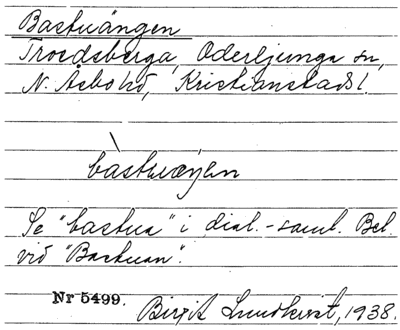 Bastuängen
Troedsberga, Oderljunga sn,
N. Åsbo hd, Kristianstads l.
bàstuæŋen
Se "bastua" i dial.-saml. Bel.
vid "Bastuan".
Nr 5499. Birgit Lundkvist, 1938.